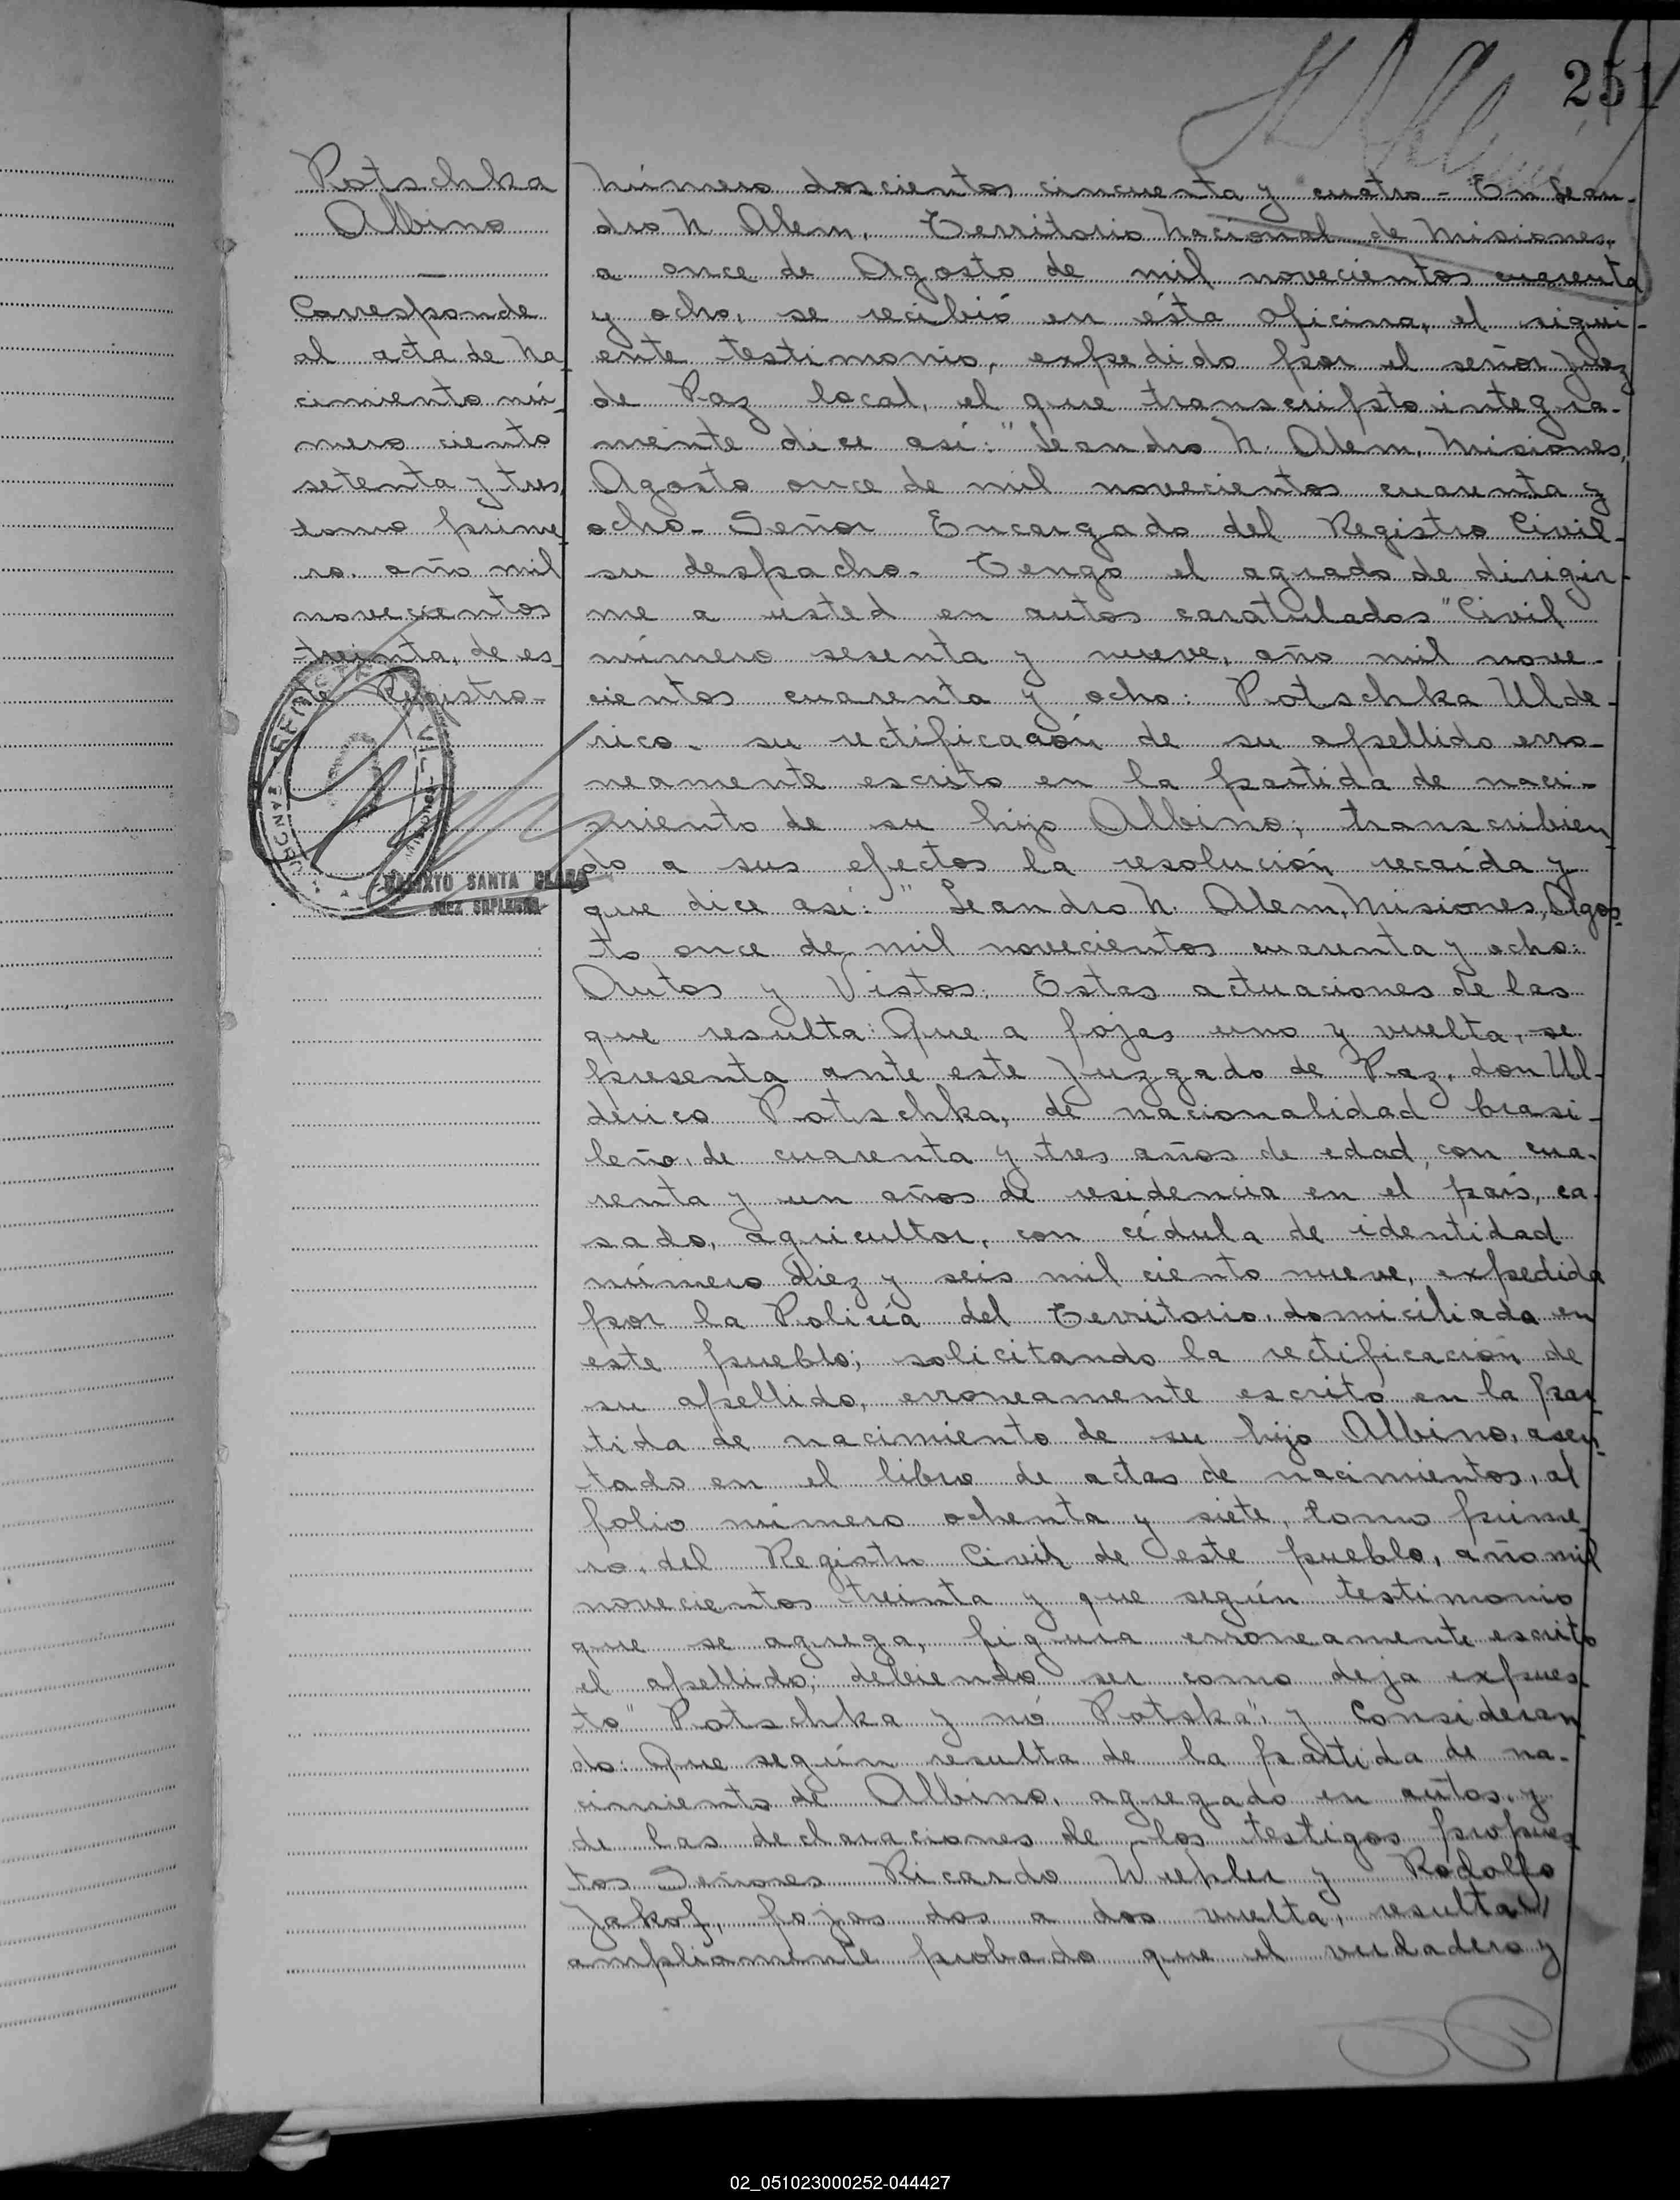 251
Potschka
Albino
Corresponde
al acta de Na
cimiento nú-
mero ciento
setenta y tres,
tomo prime-
ro. año mil
novecientos
treinta, de es-
te Registro-
SANTA CLARA
JUEZ SUPLENTE
Número doscientos cincuenta y cuatro - En Lean-
dro N. Alem, Territorio Nacional de Misiones,
a once de Agosto de mil novecientos cuarenta
y ocho, se recibió en ésta Oficina, el sigui-
ente testimonio, expedido por el señor Juez
de Paz local, el que transcripto integra-
mente dice así: "Leandro N. Alem, Misiones,
Agosto once de mil novecientos cuarenta y
ocho- Señor Encargado del Registro Civil-
su despacho- Tengo el agrado de dirigir-
me a usted en autos caratulados "Civil
número sesenta y nueve, año mil nove-
cientos cuarenta y ocho: Potschka Ulde-
rico- su rectificación de su apellido erro-
neamente escrito en la partida de naci-
miento de su hijo Albino; transcribien
do a sus efectos la resolución recaída y
que dice así: "Leandro N. Alem, Misiones, Agos-
to once de mil novecientos cuarenta y ocho:
Autos y Vistos: Estas actuaciones de las
que resulta: Que a fojas uno y vuelta, se
presenta ante este Juzgado de Paz, don Ul-
derico Potschka, de nacionalidad brasi-
leño, de cuarenta y tres años de edad, con cua-
renta y un años de residencia en el país, ca-
sado, agricultor, con cédula de identidad
número diez y seis mil ciento nueve, expedida
por la Policía del Territorio, domiciliada en
este pueblo; solicitando la rectificación de
su apellido, erroneamente escrito en la par
tida de nacimiento de su hijo Albino, asen-
tado en el libro de actas de nacimientos, al
folio número ochenta y siete, tomo prime-
ro, del Registro Civil de este pueblo, año mil
novecientos treinta y que según testimonio
que se agrega, figura erroneamente escrito
el apellido; debiendo ser como deja expues-
to "Potschka y nó Potska"; y Consideran
do: Que según resulta de la partida de na-
cimiento de Albino, agregado en autos, y
de las declaraciones de los testigos propues-
tos Señores Ricardo Wuepler y Rodolfo
Jakof, fojas dos a dos vuelta, resulta
ampliamente probado que el verdadero y
02_051023000252-044427